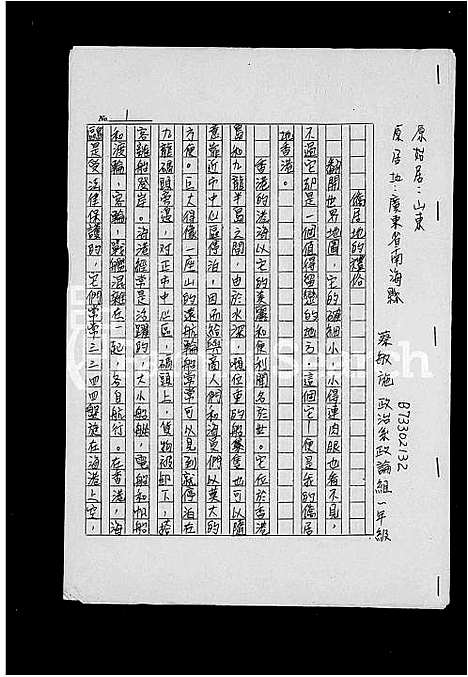 原始居:山東
原居地:廣東省南海縣
蔡敏施 政治系政論組一年級
B73302132
No. 1
僑居地的禮俗
翻開世界地圖,它的確細小,小得連肉眼也看不見,
不過它卻是一個值得留戀的地方,這個它—便是我的僑居
地香港。
香港的港海以它的美麗和便利聞名於世。它位於香港
島和九龍半島之間,由於水深,噸位重的船隻也可以隨
意靠近市中心區停泊,因而給與商人們和海員們以莫大的
方便。巨大得像一座山的遠航輪船常常可以見到就停泊在
九龍碼頭旁邊,對正市中心區,碼頭上,貨物被卸下,搭
客離船登岸。海港經常是活躍的,大小船舶,電船和帆船
和渡輪,客輪,戰艦混雜在一起,各自航行。在香港,海
鷗是受法律保護的,它們常常三三四四盤旋在海港上空,
Search